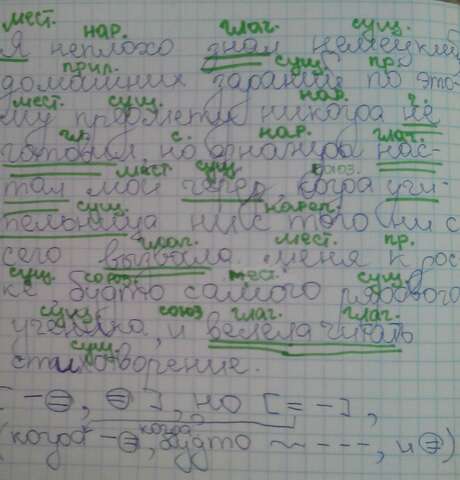 мест. нар. глаг. сущ.
Я неплохо знал немецкий
прил. сущ. пр.
домашних заданий по это-
мест. сущ. нар. ч.
му предмету никогда не
гл. с. нар. глаг.
готовил, но однажды нас-
мест. сущ. союз.
тал мой черед, когда учи-
сущ. нареч.
тельница ни с того ни с
глаг. мест. пр.
сего вызвала меня к дос-
сущ. союз мест. сущ.
ке, будто самого рядового
сущ. союз глаг. глаг.
ученика, и велела читать
сущ.
стихотворение.
[ -⊜, ⊜ ], но [ = - ],
когда
(когда -⊜, будто ~ - - -, и ⊜)